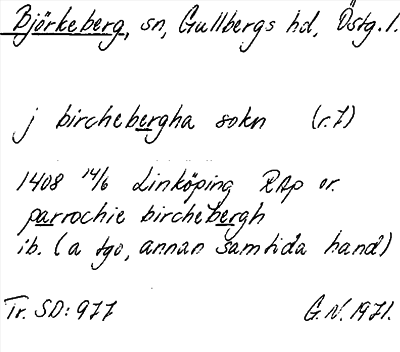 Björkeberg, sn, Gullbergs hd, Östg. l.
j birchebergha sokn (r. 7)
1408 14/6 Linköping RAp or.
parrochie birchebergh
ib. (a tgo, annan samtida hand)
Tr. SD: 977 G.N. 1971.